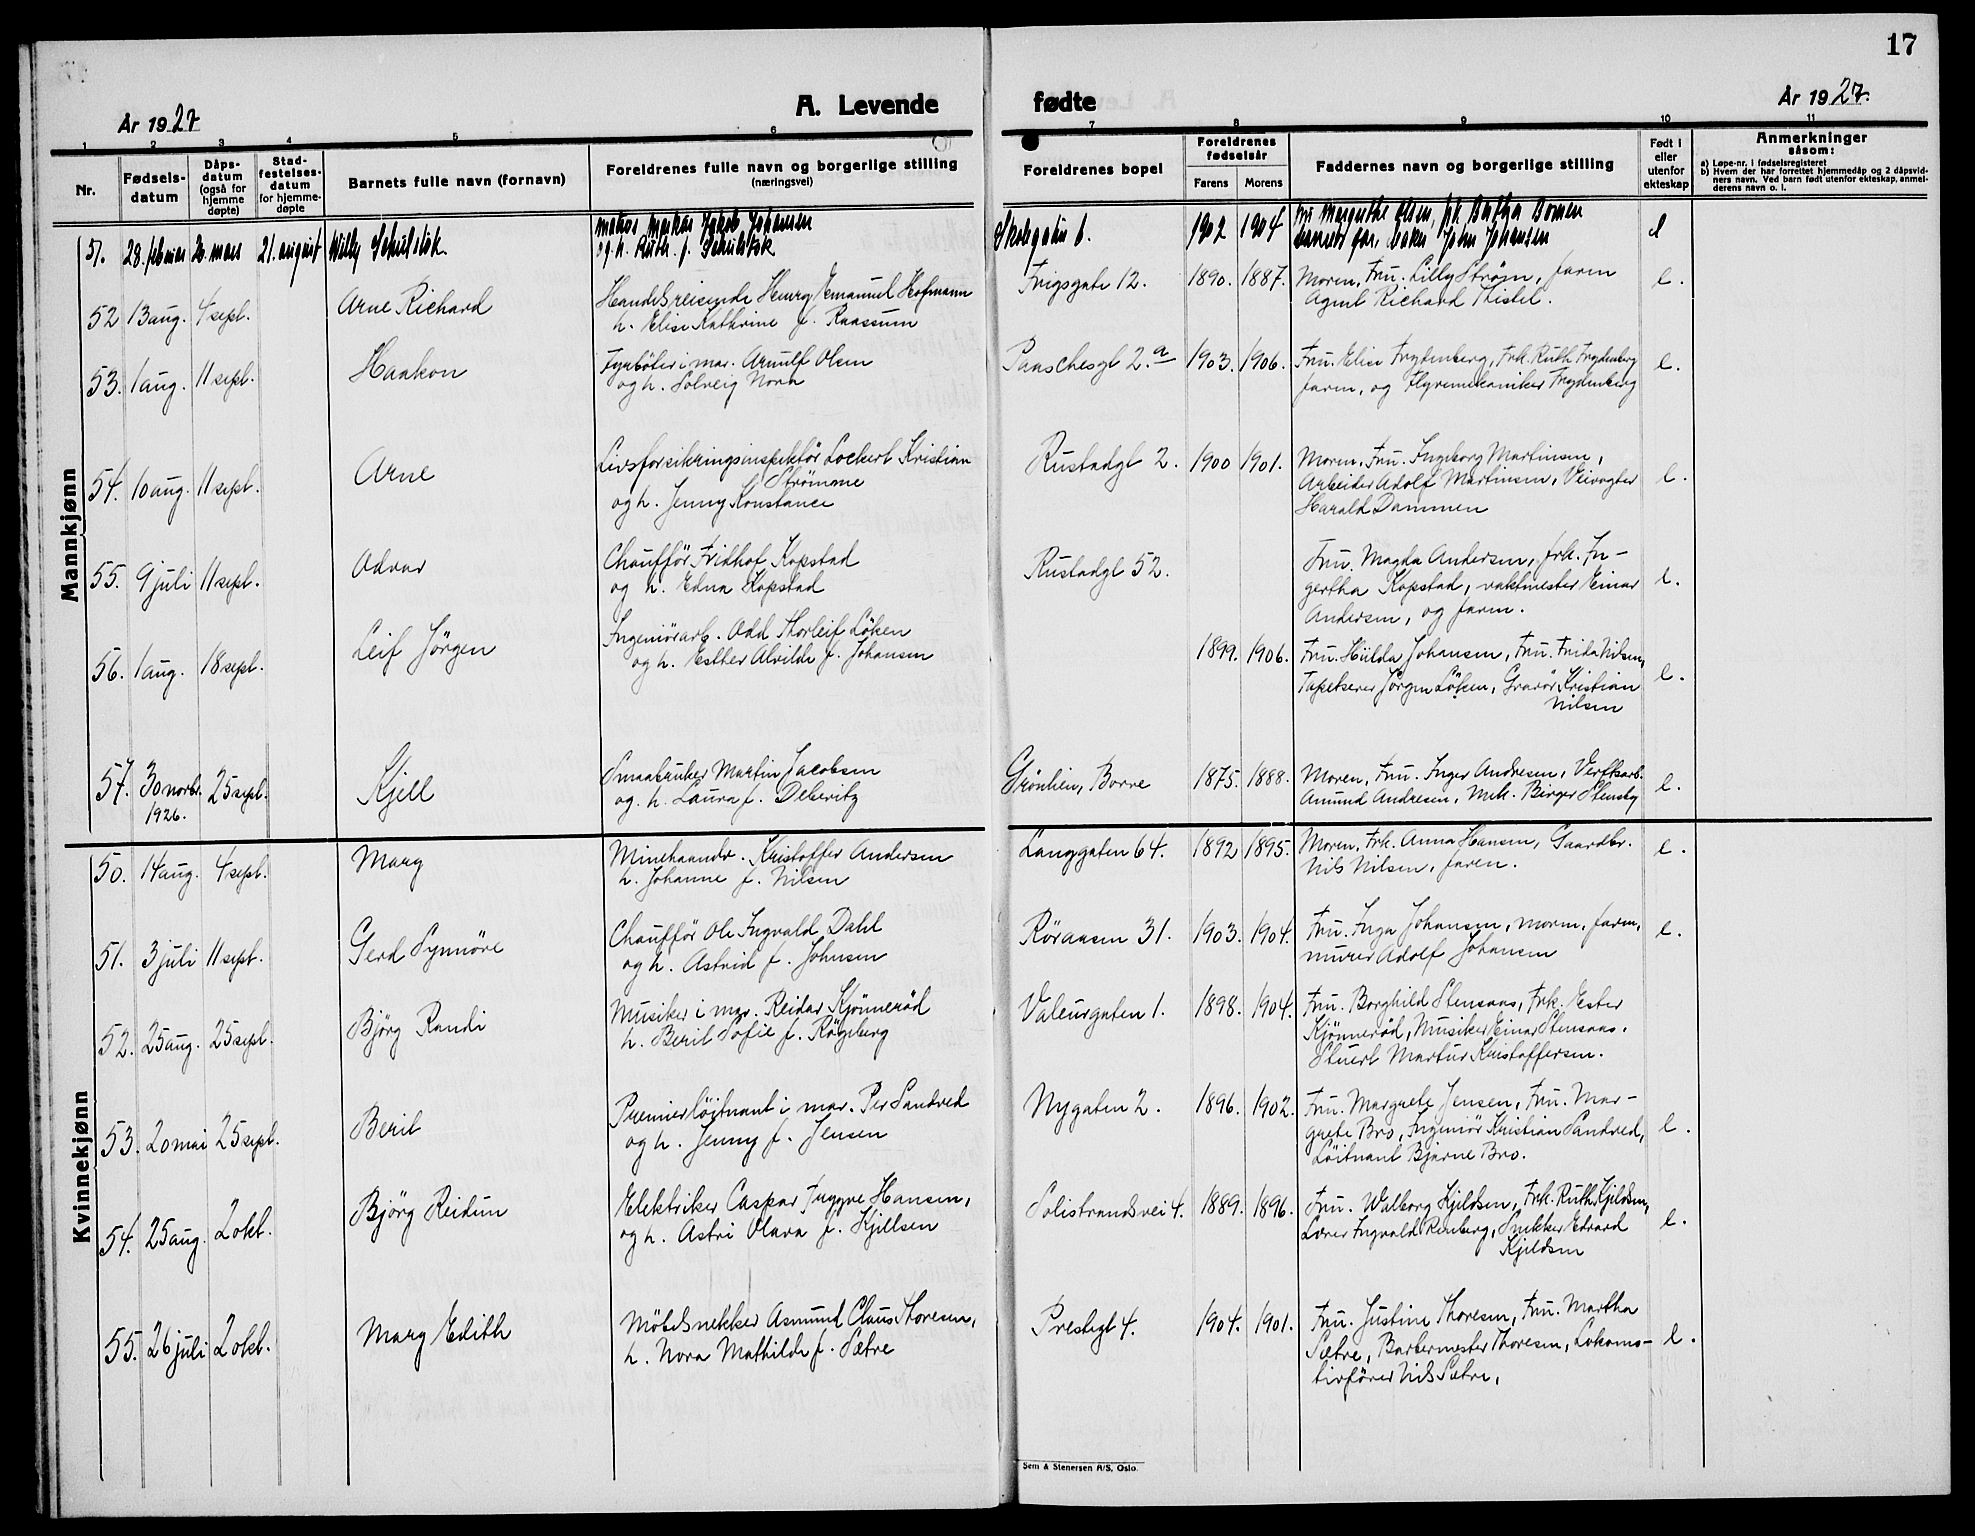 17
År 1927
A. Levende
fødte
År 1927.
1 2 3 4 5 6 7 8 9 10 11
Nr.
Fødsels-
datum
Dåps-
datum
(også for
hjemme
døpte)
Stad-
festelses-
datum
for hjemme-
døpte
Barnets fulle navn (fornavn)
Foreldrenes fulle navn og borgerlige stilling
(næringsvei)
Foreldrenes bopel
Foreldrenes
fødselsår
Farens Morens
Faddernes navn og borgerlige stilling
Født i
eller
utenfor
ekteskap
Anmerkninger
såsom:
a) Løpe-nr. i fødselsregisteret
b) Hvem der har forrettet hjemmedåp og 2 dåpsvid-
ners navn. Ved barn født utenfor ekteskap, anmel-
derens navn o. l.
Mannkjønn
51. 28. februar 20. mars 21. august Willy Schulstok
Matros Markus Jakob Johansen
og h. Ruth f. Schulstok
Skolegaten 6. 1902 1904
Fru Margrethe Olsen, frk. Bertha Bomen
barnets far, baker John Johansen
e
52 13 aug. 4 sept. Arne Richard
Handelsreisende Henry Emanuel Hofmann
h. Elise Kathrine f. Raassum
Frigsgate 12. 1890. 1887.
Moren, Fru. Lilly Strøm, faren
Agent Richard Thistel.
e.
53. 1 aug. 11 sept. Haakon
Fyrbøter i mar. Arnulf Olsen
og h. Solveig Nora
Paaschesgt 2.a 1903. 1906.
Fru. Elise Frydenberg, Frk. Ruth Frydenberg
faren, og Flyvemekaniker Frydenberg
e.
54. 10 aug. 11 sept. Arne
Livsforsikringsinspektör Lockert Kristian
Strömme
og h. Jenny Konstance
Rustadgt 2. 1900 1901.
Moren, Fru. Ingeborg Martinsen,
Arbeider Adolf Martinsen, Veivogter
Harald Dammen
e.
55. 9 juli 11 sept. Odvar
Chaufför Fridhof Kopstad
og h. Edna Kopstad
Rustadgt 52.
Fru. Magda Andersen, frk. In-
gertha Kopstad, vaktmester Einar
Andersen, og faren.
e.
56. 1 aug. 18 sept. Leif Jörgen
Ingeniörarb. Odd Thorleif Löken
og h. Esther Alvilde f. Johansen
1899. 1906.
Fru. Hulda Johansen, Fru. Frida Nilsen,
Tapetserer Jörgen Löken, Gravör Kristian
Nilsen
e.
57. 30 novbr. 25 sept. Kjell
1926.
Smaabruker Martin Jacobsen
og. h. Laura f. Deberitz
Grönlien, Borre 1875. 1888.
Moren, Fru. Inger Andresen, Verftsarb.
Amund Andresen, Mek. Birger Stensby
e.
Kvinnekjønn
50. 14 aug. 4 sept. Mary
Minehaandv. Kristoffer Andersen
h. Johanne f. Nilsen
Langgaten 64. 1892 1895.
Moren, Frk. Anna Hansen, Gaardbr.
Nils Nilsen, faren.
e.
51. 3 juli 11 sept. Gerd Synnöve
Chaufför Ole Ingvald Dahl
og h. Astrid f. Johnsen
Röraasen 31. 1903. 1904.
Fru. Inga Johansen, moren, faren,
murer Adolf Johansen
e.
52. 25 aug. 25 sept. Björg Randi
Musiker i mar. Reidar Kjönneröd
h. Beril Sofie f. Rögeberg
Valeurgaten 1. 1898. 1904.
Fru. Borghild Stensaas, Frk. Ester
Kjönneröd, Musiker Einar Stensaas.
Stuert Martur Kristoffersen.
53. 20 mai 25 sept. Beril
Premierlöitnant i mar. Per Sandved
og h. Jenny f. Jensen
Nygaten 2. 1896. 1902.
Fru. Margrete Jensen, Fru. Mar-
grete Bro, Ingeniör Kristian Sandved,
Löitnant Bjarne Bro.
e.
54. 25 aug. 2 okt. Björg Reidun
Elektriker Caspar Trygve Hansen,
og h. Astri Olava f. Kjellsen
Solistrandsvei 4. 1889. 1896.
Fru. Walborg Kjeldsen, Frk. Ruth Kjeldsen,
Lærer Ingvald Renberg, Snekker Edvard
Kjeldsen
e.
55. 26 juli 2 okt. Mary Edith
Möbelsnekker Asmund Claus Thoresen,
h. Nora Mathilde f. Sætre
Prestegt 4. 1904. 1901.
Fru. Justine Thoresen, Fru. Martha
Sætre, Barbermester Thoresen, Lokomo-
tivförer Nils Sætre,
e.
Sem & Stenersen A/S, Oslo.